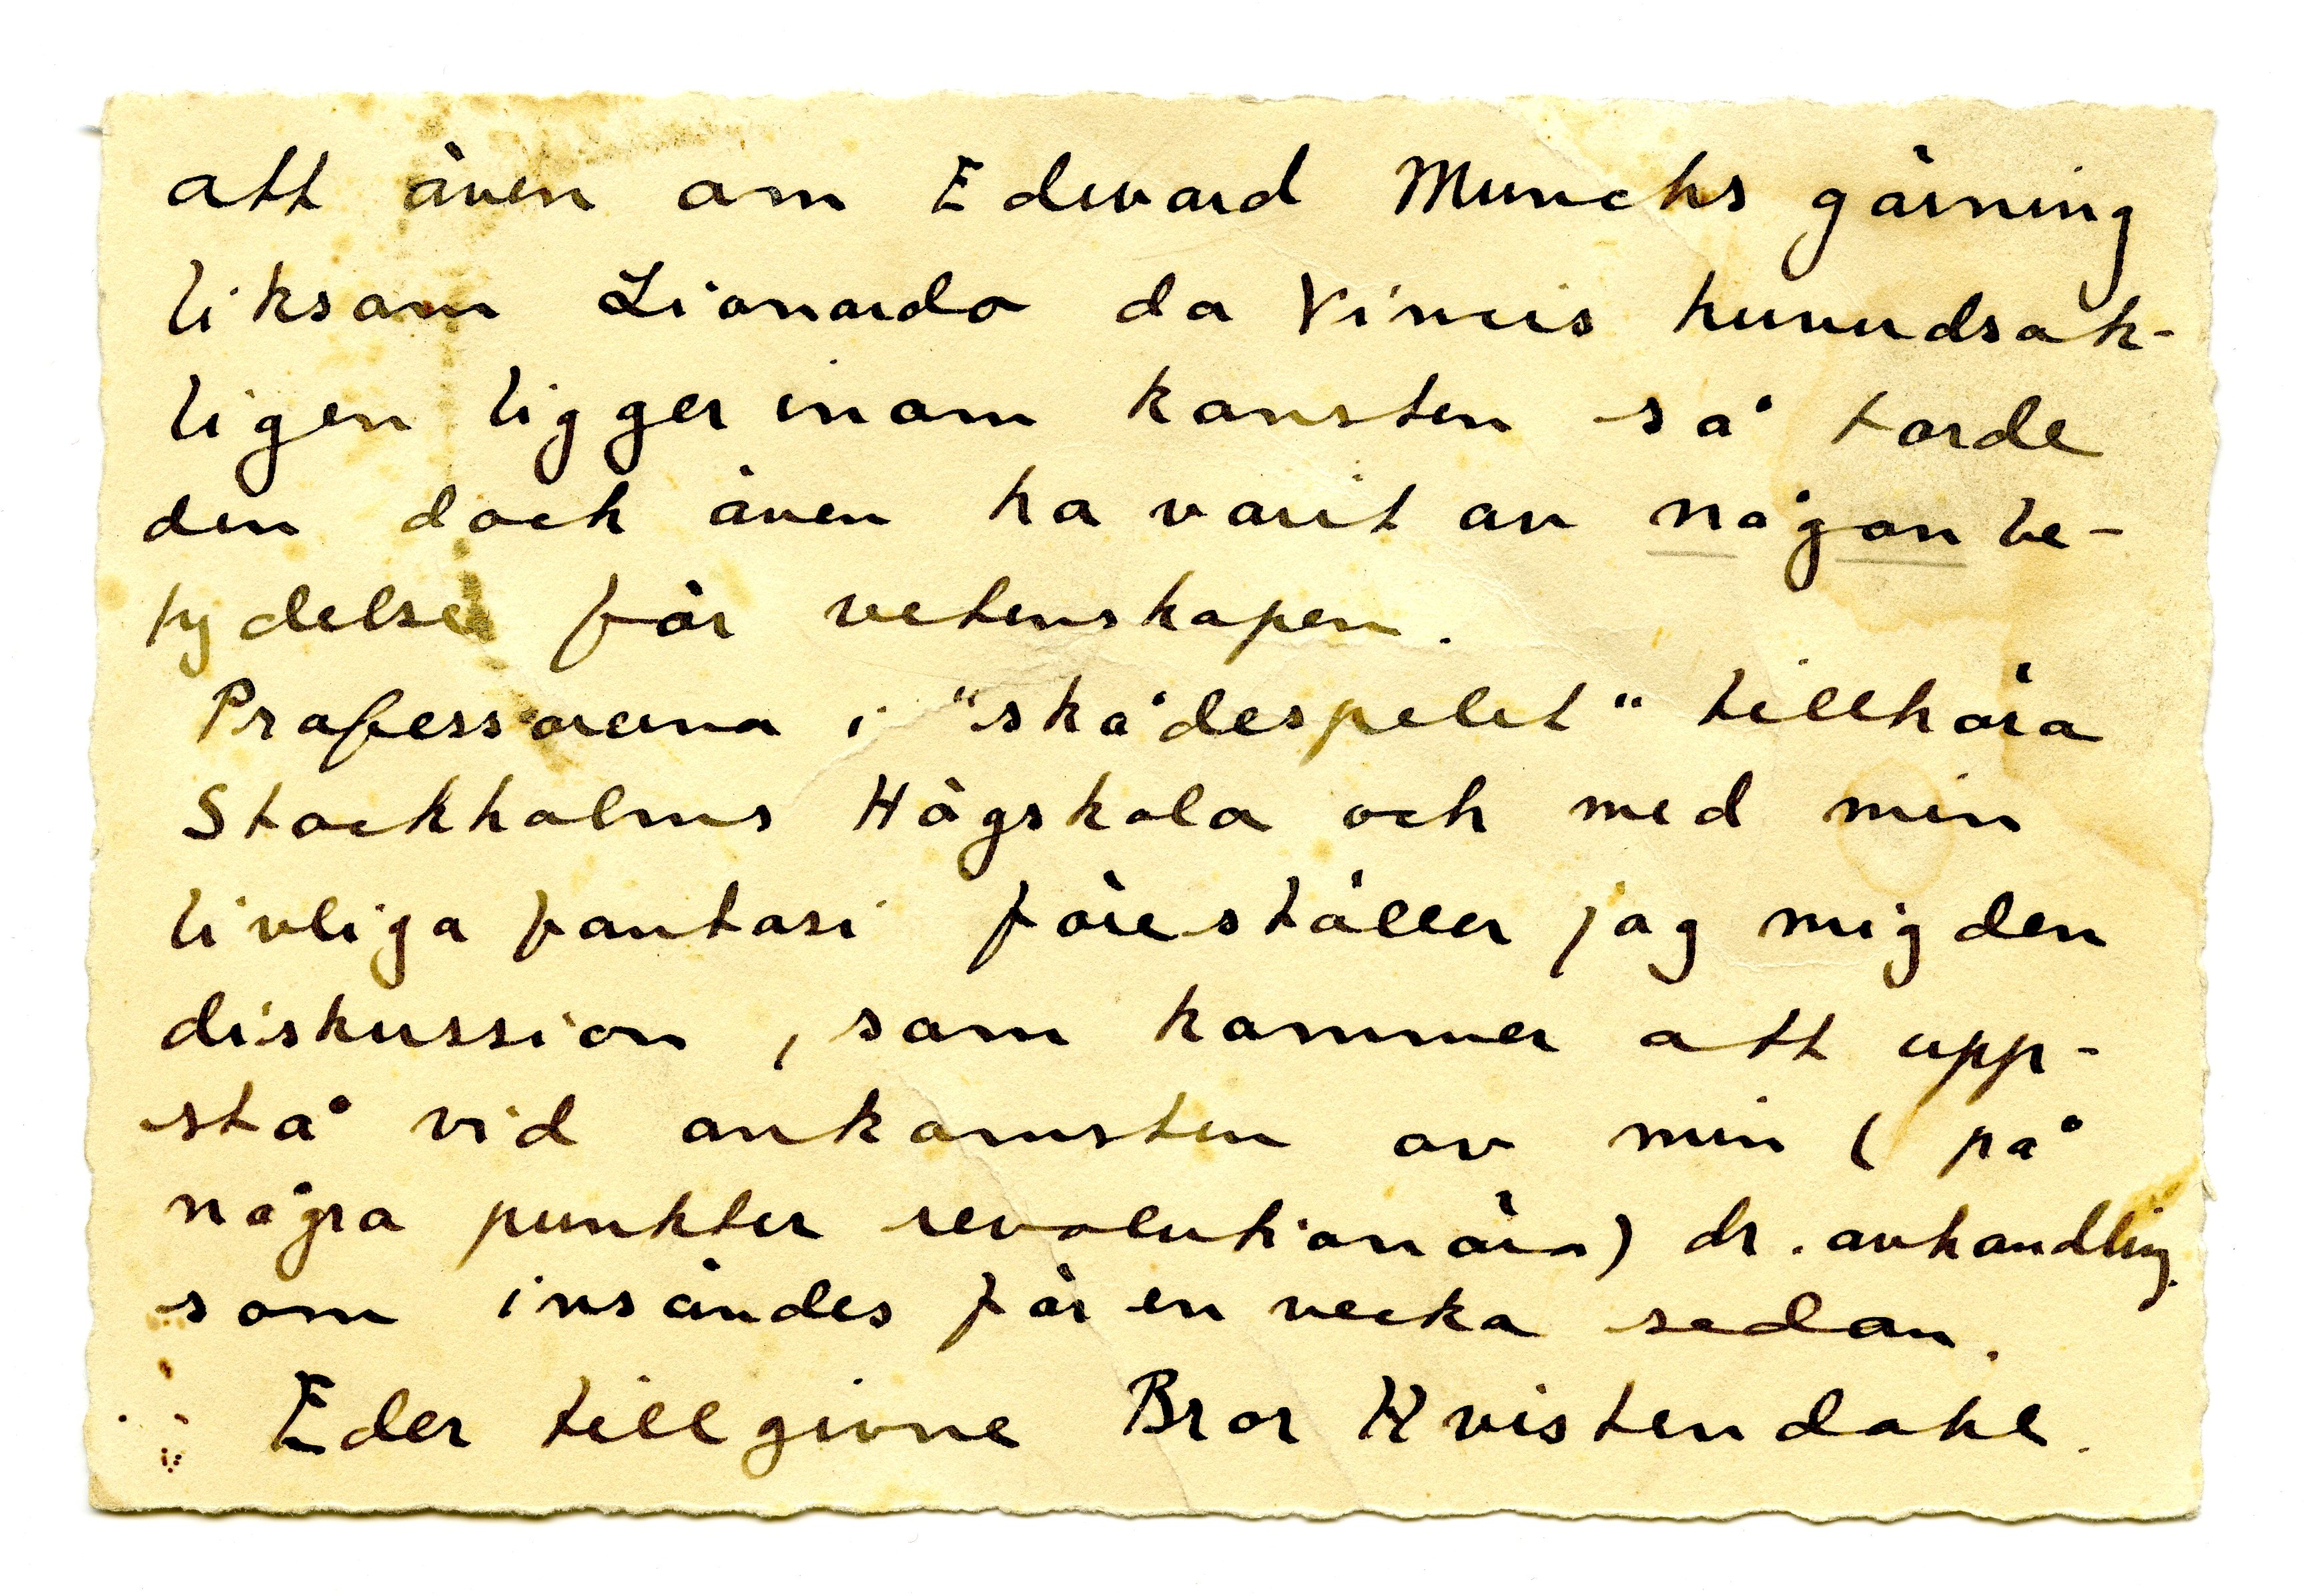 att även om Edward Munchs gärning
liksom Lionardo da Vincis huvudsak-
ligen ligger inom konsten så torde
den dock även ha varit av någon be-
tydelse för vetenskapen.
Professorerna i "skådespelet" tillhöra
Stockholms Högskola och med min
livliga fantasi föreställer jag mig den
diskussion, som kommer att upp-
stå vid ankomsten av min (på
några punkter revolutionära) dr. avhandling
som insändes för en vecka sedan.
Eder tillgivne Bror Kvistendahl.